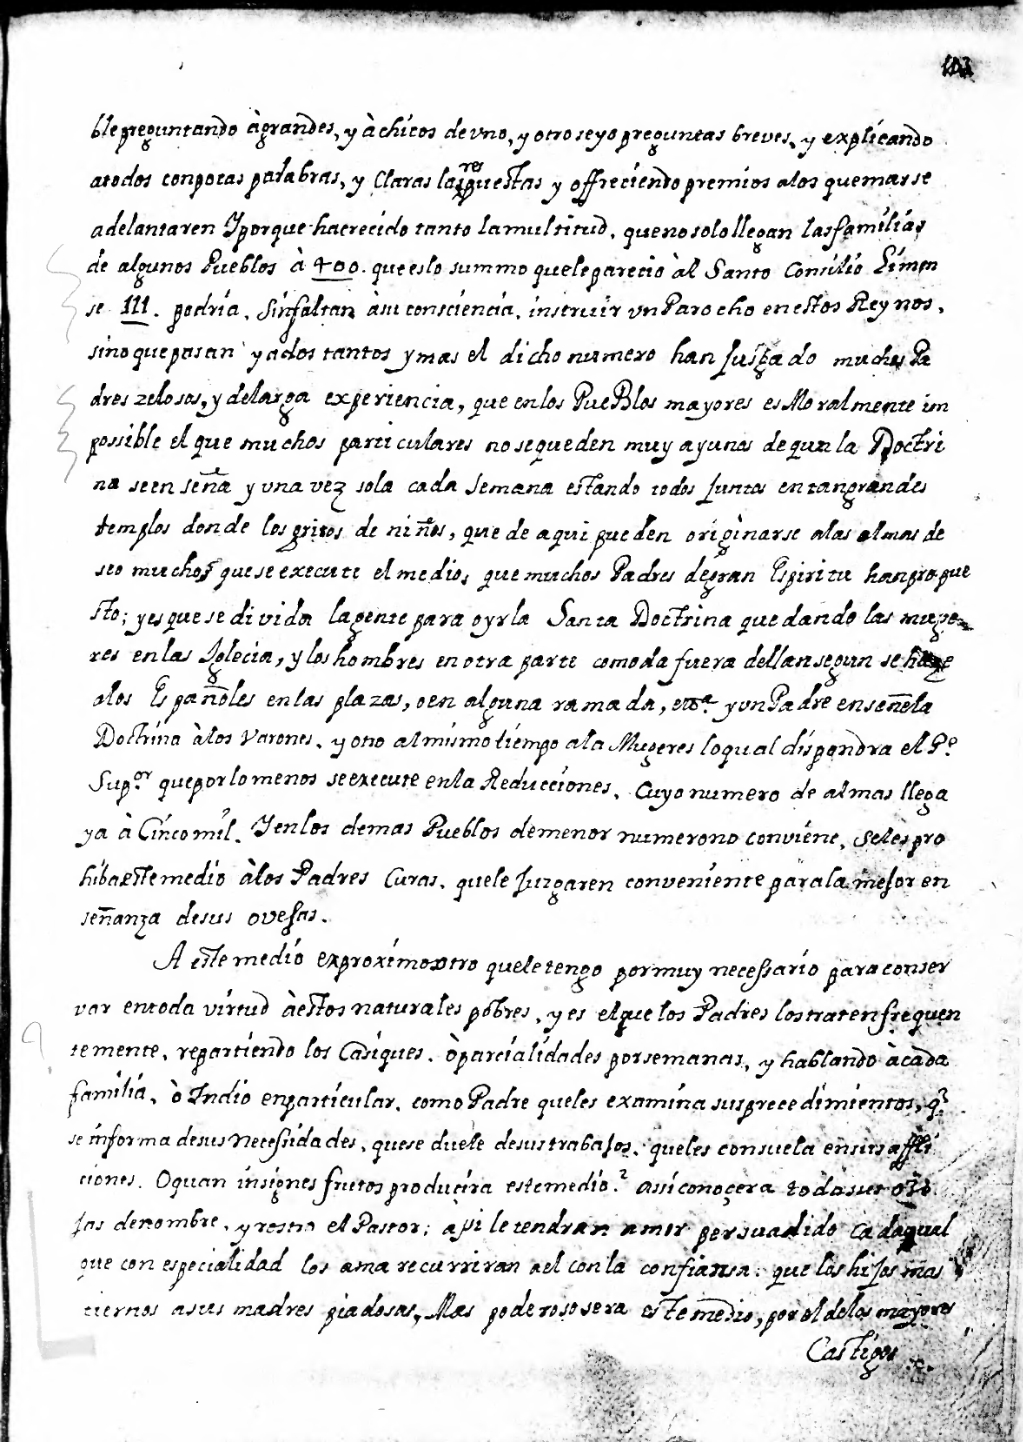 ble preguntando à grandes, y à chicos de uno, y otro seyo preguntas breves, y explicando
atodos conpocas palabras, y Claras las respuestas y offreciendo premios alos quemas se
adelantaren Y porque hacrecido tanto lamultitud, quenosolo llegan lasfamilias
de algunos Pueblos à 400. queeslo summo queleparecio àl Santo Consilio Limen
se III. podria, Sinfaltan àsu consciencia, instruir vn Parocho enestos Reynos,
sinoquepasan yados tantos ymas el dicho numero han Jusgado muchos Pa
dres zelosos, y delarga experiencia, que enlos PueBlos mayores esMoralmente im
possible el que muchos particulares nosequeden muy ayunos dequanla Doctri
na seenseña y vna vez sola cada Semana estando todos Juntos entangrandes
templos donde los gritos de niños, que de aqui pueden originarse alas almas de
seo mucho queseexecute elmedio, que muchos Padres degran Espiritu hanpropue
sto; yesquesedivida lagente para oyrla Santa Doctrina quedando las muge
res enlas Iglecia, y loshombres enotra parte comoda fuera dellansegun se haze
alos Españoles enlas plazas, oen alguna ramada, etca. yunPadre enseñela
Doctrina àlos Varones, y otro almismo tiempo ala Mugeres loqual dispondra el Pe.
Supor. queporlomenos seexecute enla Reducciones, Cuyo numero de almas llega
ya à Cincomil. Yenlos demas Pueblos demenor numerono conviene, selespro
hibaestemedio àlos Padres Curas, quele Juzgaren conveniente parala mejor en
señanza desus ovejas.
A estemedio exproximootro queletengo pormuy necessario para conser
var entoda virtud àestos naturales pobres, y es elque los Padres lostratenfrequen
temente, repartiendo los Casiques, òparcialidades porsemanas, y hablando àcada
familia, ò Indio enparticular, como Padre queles examina susprecedimientos, q.
se informa desus Necessidades, quese duele desustrabajos, queles consuela ensus affli
ciones. Oquan insignes frutos producira estemedio? assi conocera todasus ove
jas denombre, y rostro el Pastor; asi letendran amor persuadido cadaqual
que con especialidad los ama recurriran ael conla confiansa, que los hijos mas
tiernos asus madres piadosas, Mas poderososera estemedio, por el delos mayores
Castigos